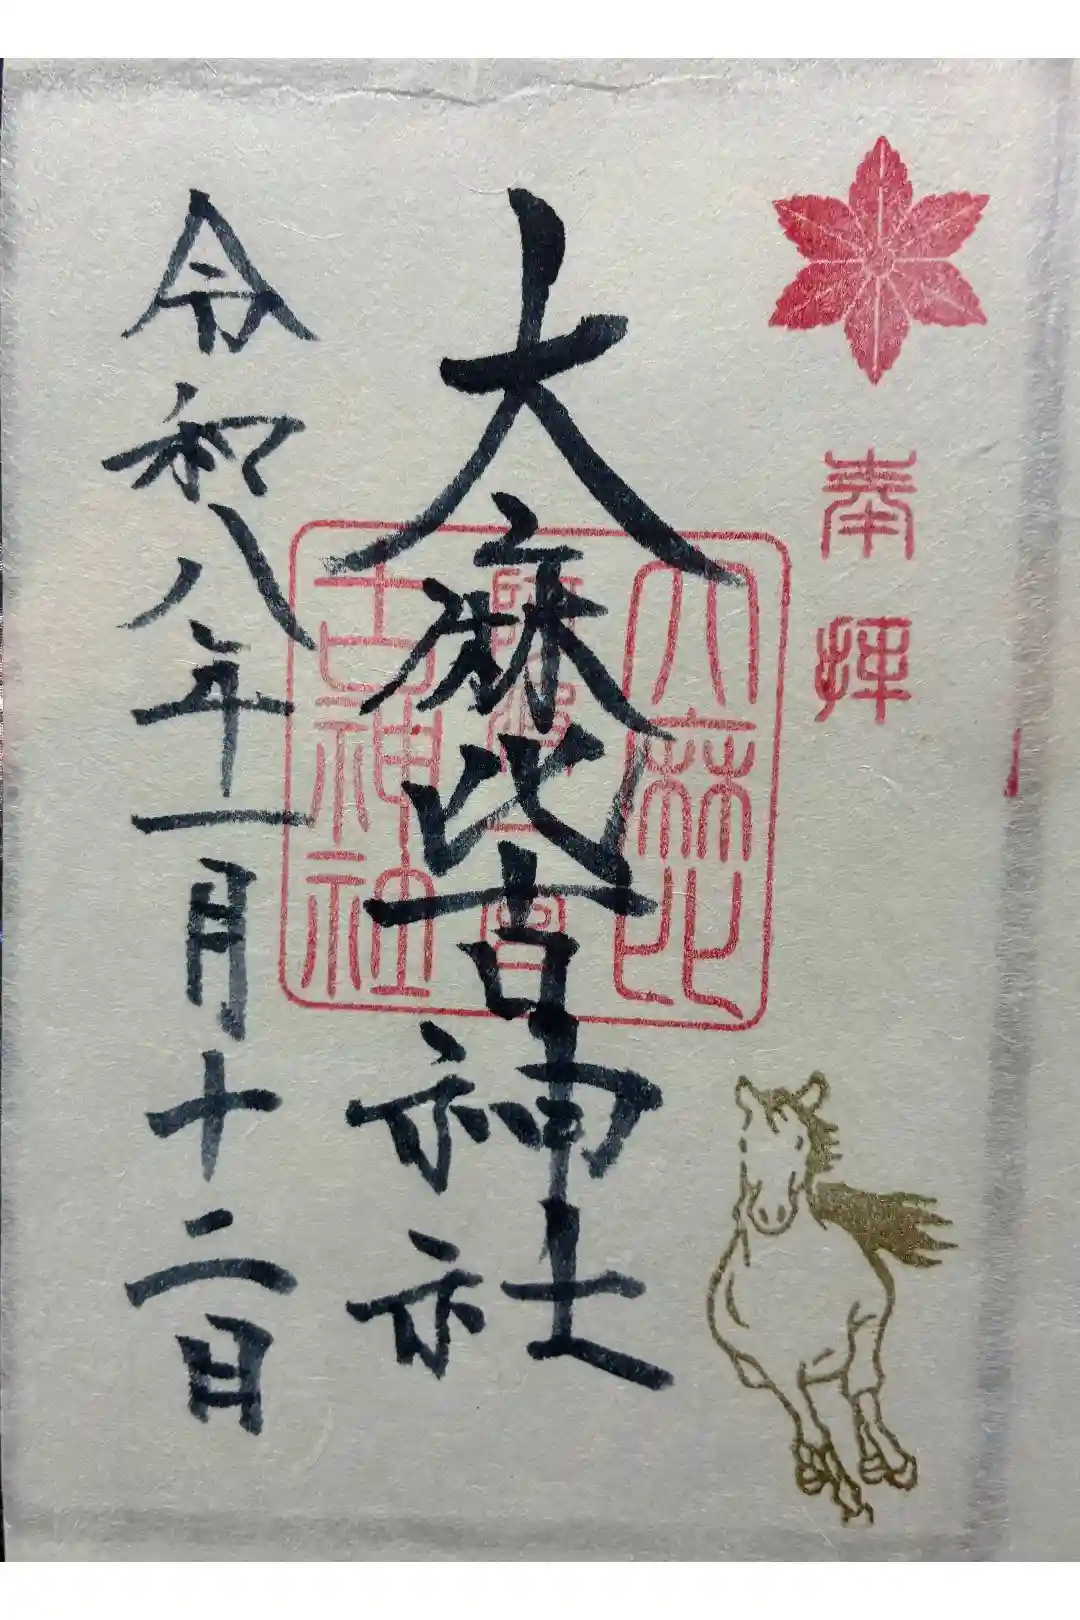 奉拝
大麻比古神社
大麻比
古神社
令和八年一月十二日